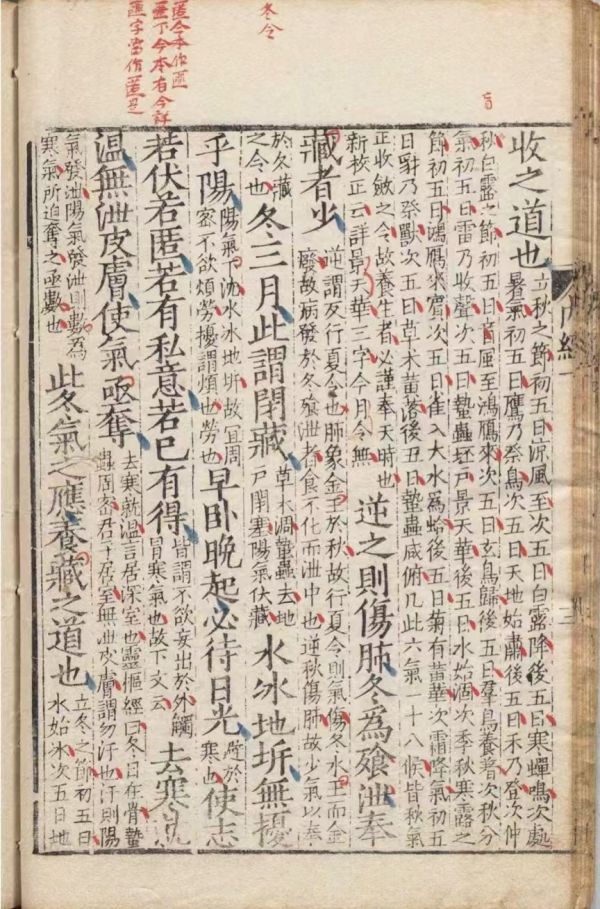 盲
冬令
内經一
三
收之道也立秋之節初五日涼風至次五日白露降後五日寒蟬鳴次處暑氣初五日鷹乃祭鳥次五日天地始肅後五日禾乃登次仲
秋白露之節初五日盲風至鴻鴈來次五日玄鳥歸後五日羣鳥養羞次秋分
氣初五日雷乃收聲次五日蟄蟲坯戶景天華後五日水始涸次季秋寒露之
節初五日鴻鴈來賓次五日雀入大水為蛤後五日菊有黃華次霜降氣初五
日豺乃祭獸次五日草木黃落後五日蟄蟲咸俯凡此六氣一十八候皆秋氣
正收斂之令故養生者必謹奉天時也新校正云詳景天華三字今月令無逆之則傷肺冬為飱泄奉
藏者少逆謂反行夏令也肺象金王於秋故行夏令則氣傷冬水王而金廢故病發於冬飱泄者食不化而泄出也逆秋傷肺故少氣以奉
於冬藏之令也冬三月此謂閉藏草木凋蟄蟲去地戶閉塞陽氣伏藏水冰地坼無擾
乎陽陽氣下沈水冰地坼故宜周密不欲煩勞擾謂煩也勞也早卧晚起必待日光避於寒也使志
若伏若匿若有私意若已有得皆謂不欲妄出於外觸冒寒氣也故下文云去寒就
温無泄皮膚使氣亟奪去寒就温言居深室也靈樞經曰冬日在骨蟄蟲周密君子居室無泄皮膚謂勿汗也汗則陽
氣發泄陽氣發泄則數為寒氣所迫奪之亟數也此冬氣之應養藏之道也立冬之節初五日水始冰次五日地